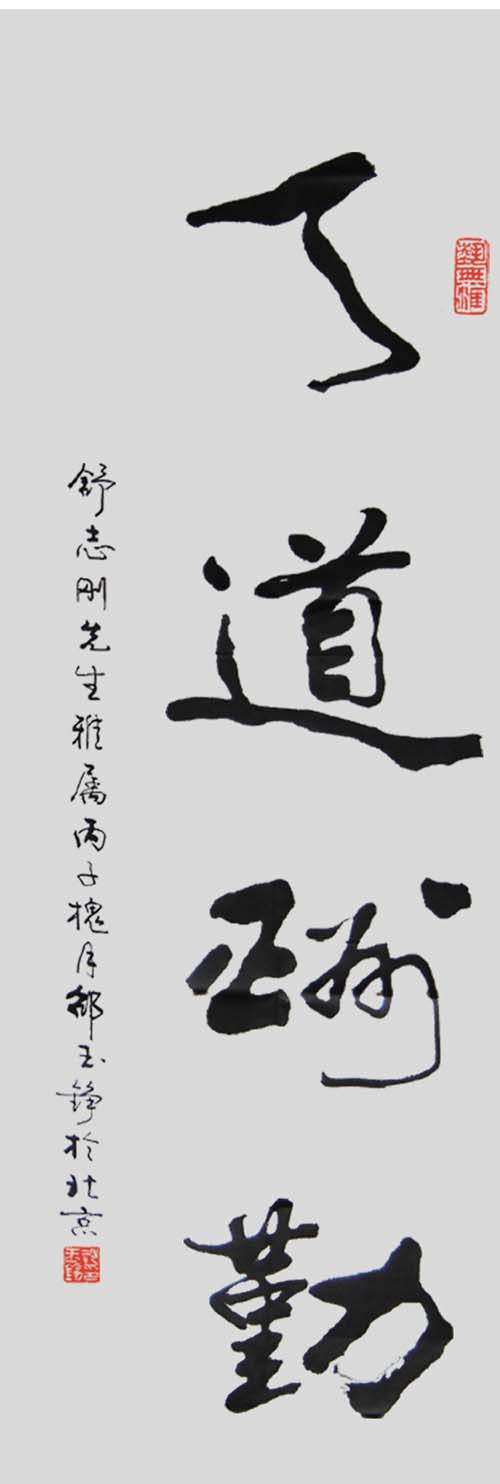 藝無涯
天道酬勤
舒志刚先生雅属丙子槐月玉铮於北京